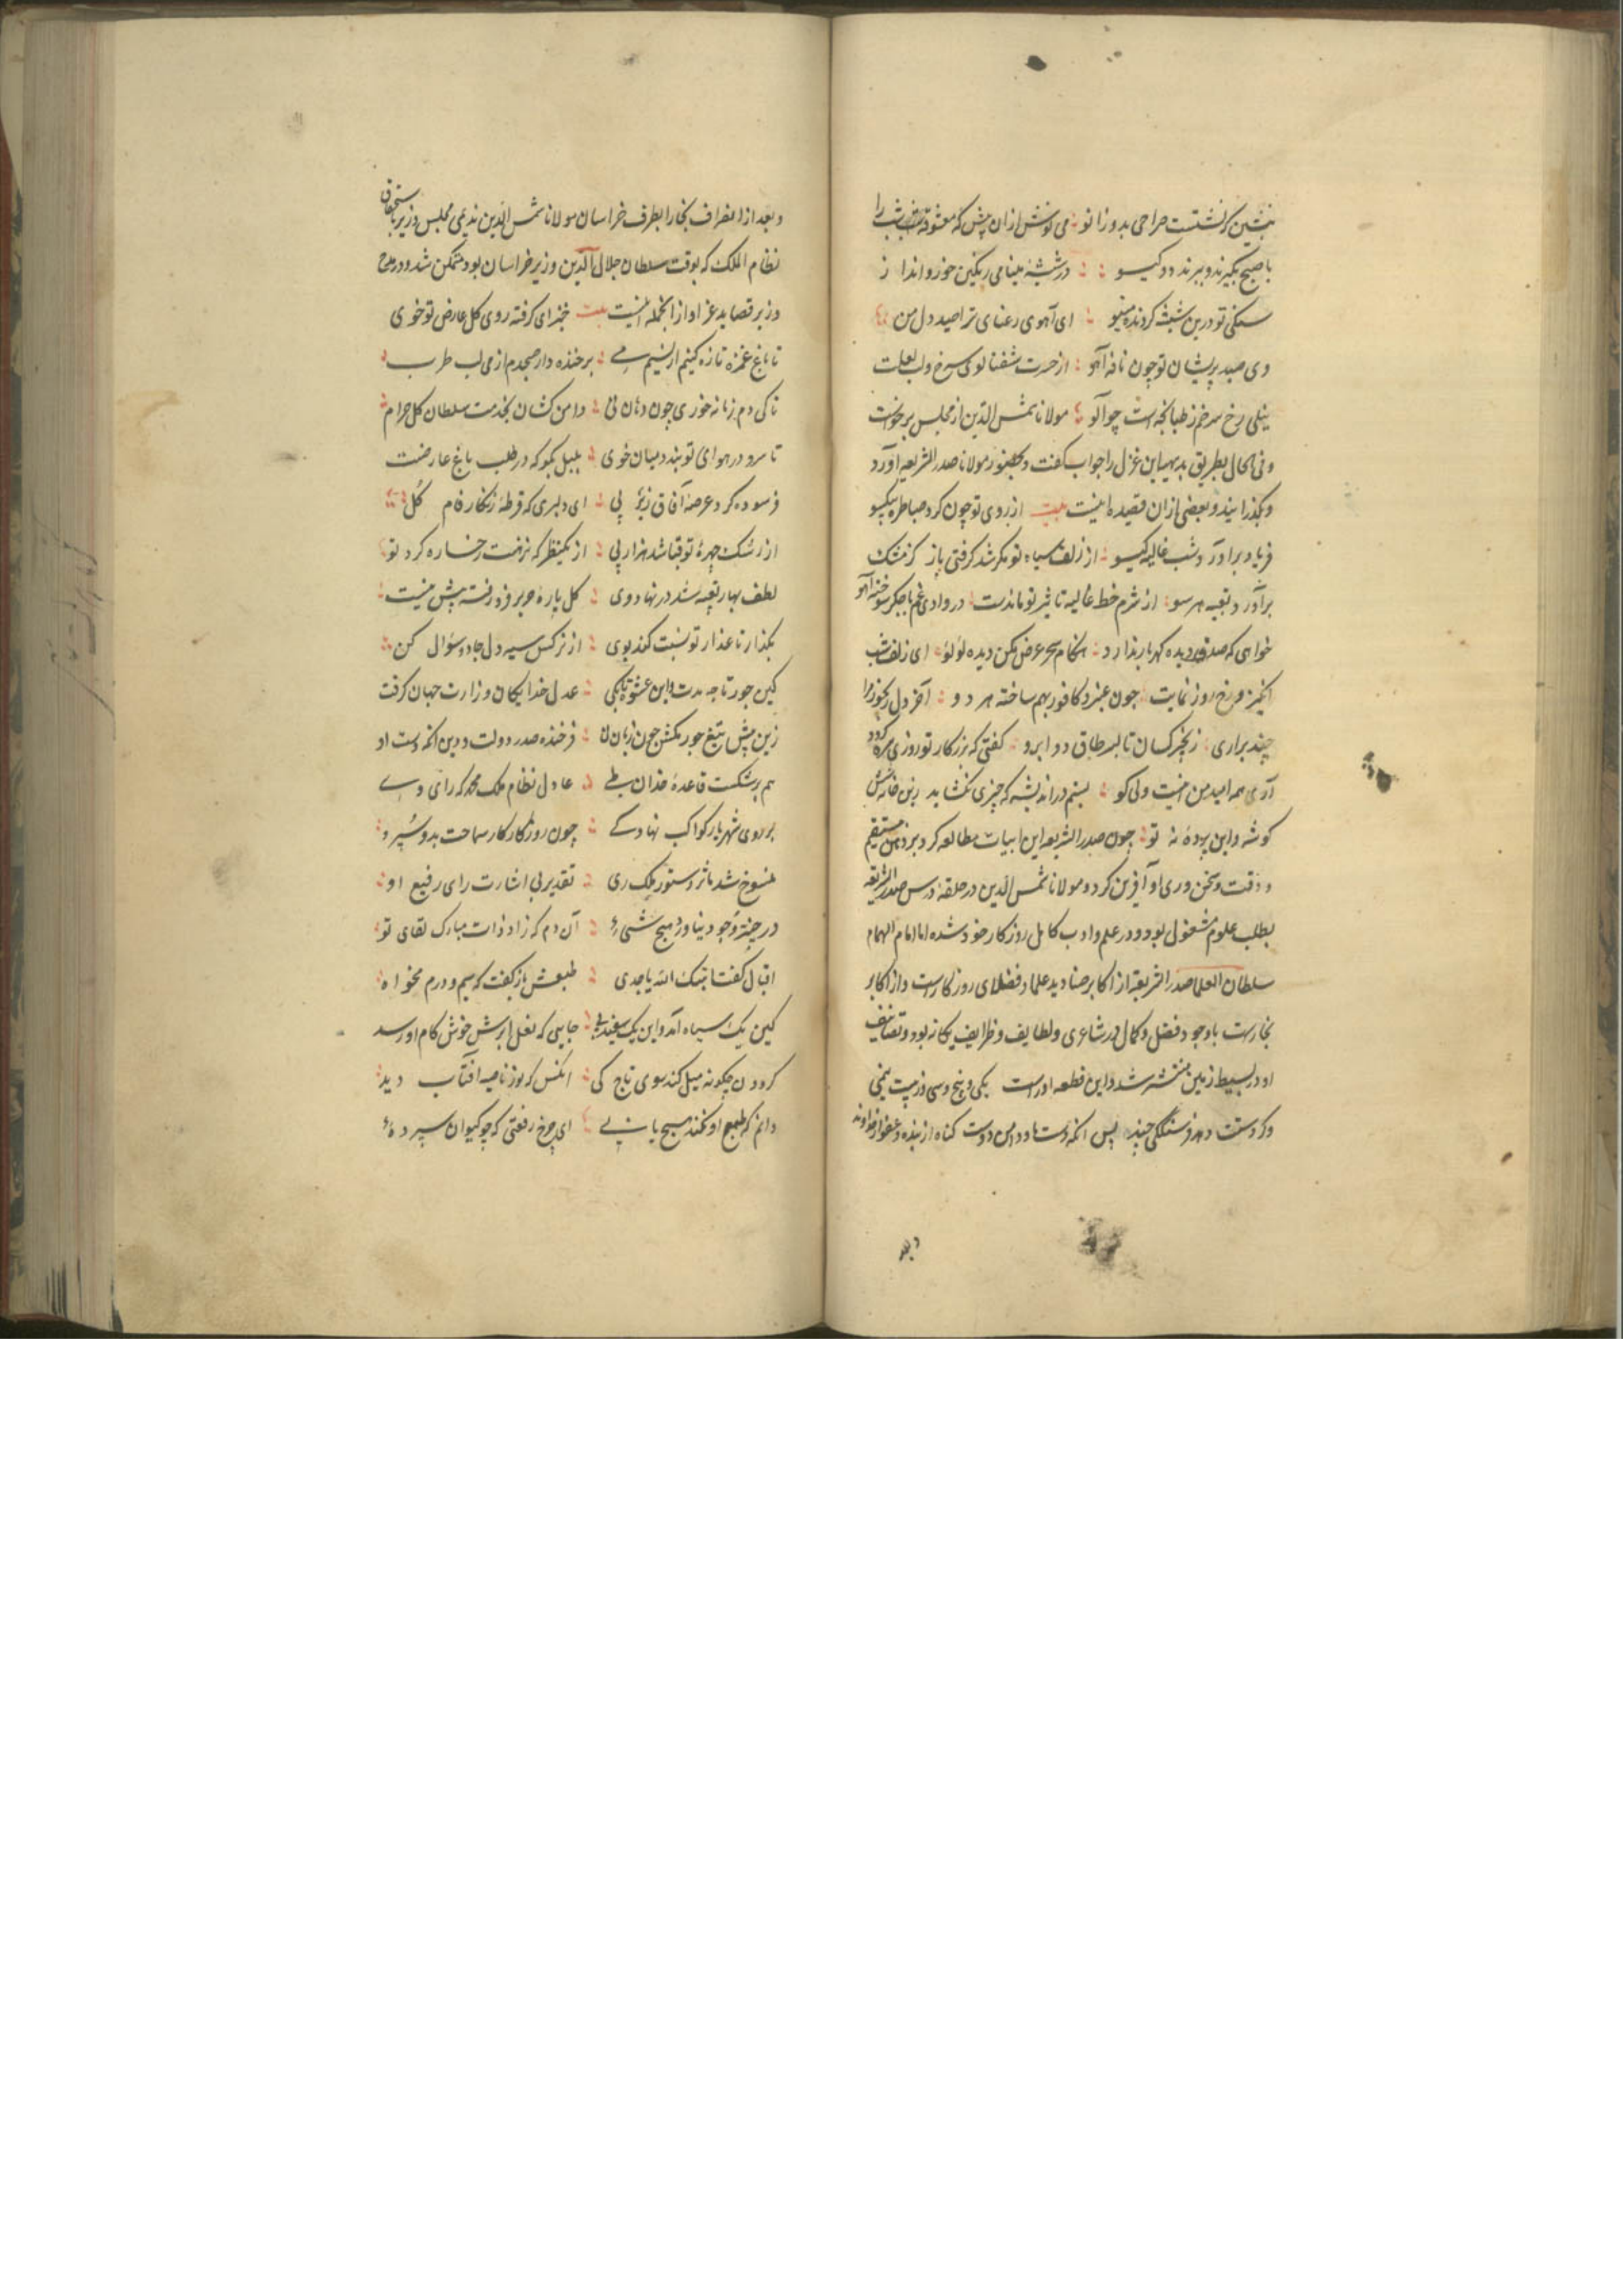 بنشین که نشست صراحی بدو زانو می نوش ازان پیش که معشوقه شب را
با صبح بگیرند و ببرند دو گیسو در شیشه مینا می رنگین خور و انداز
سنکی تو درین شیشه کردنده مینو ای آهوی رعنای ترا صید دل من
وی صید پریشان تو چون نافه آهو از حسرت شفتالوی سرخ و لب لعلت
نیلی رخ سرخم ز طبانجه است چو آلو مولانا شمس الدین از مجلس برخواست
و فی الحال بطریق بدیهه این غزل را جواب گفت و بحضور مولانا صدر الشریعه آورد
و بگذرانید و بعضی ازان قصیده اینست بیت از روی تو چون کرد صبا طره بیکسو
فریاد برآورد شب غالیه گیسو از زلف سیاه تو مگر شد گرفتی باز کز مشک
برآورد تعبیه هر سو از شرم خط غالیه تاثیر تو ماندست در وادی غم با جگر سوخته آهو
خواهی که صدف دیده گهربار ندارد هنگام سحر عرض مکن دیده لولو ای زلف شب
انگیز و رخ روز نمایت چون عنبر و کافور بهم ساخته هر دو آخر دل رنجور مرا
چند براری زنجیر کسان تا بسر طاق دو ابرو گفتی که بزر کار تو روزی سره گردد
آری همه امید من اینست ولی کو بستم در اندیشه که چیزی نگشاید زین خانه شش
گوشه و این پرده نه تو چون صدر الشریعه این ابیات مطالعه کرد بر ذهن مستقیم
و دقت و سخن وری او آفرین کرد و مولانا شمس الدین در حلقه درس صدر الشریعه
بطلب علوم مشغول بود و در علم و ادب کامل روزگار خود شده اما امام الهمام
سلطان العلما صدر الشریعه از اکابر صنادید علما و فضلای روزگارست و از اکابر
بخارست با وجود فضل و کمال در شاعری و لطایف و ظرایف یکانه بود و تصانیف
او در بسیط زمین منتشر شد و این قطعه او راست یکی و پنج و سی وز بیست نیمی
وگر دستت دهد فرسنگکی چند پس انکه دست ما و دامن دوست گناه از بنده و عفو از خداوند
و بعد
و بعد از انصراف بخارا بطرف خراسان مولانا شمس الدین ندیمی مجلس وزیر باستحقاق
نظام الملک که بوقت سلطان جلال الدین وزیر خراسان بود متمکن شد و در مدح
وزیر قصاید غرا دارد از انجمله اینست بیت خیز ای گرفته روی گل عارض تو خوی
تا باغ غمزه تازه کنیم از نسیم می برخنده دار صبحدم از می لب طرب
تا کی دم زمانه خوری چون دهان نی دامن کشان بخدمت سلطان گل خرام
تا سرو در هوای تو بندد میان خوی بلبل بگو که در طلب باغ عارضت
فرسوده کرد عرصه آفاق زیر پی ای دلبری که قرطه زنکار فام گل
از رشک چهره تو قبا شد هزار پی از یکنظر که نزهت رخساره کرد تو
لطف بهار تعبیه شد در نهاد وی گل پاره حریر فرو رفته پیش نیست
بگذار تا عذار تو نسبت کند بوی از نرکس سیه دل جادو سؤال کن
کین جور تا چه مدت و این عشوه تا بکی عدل خدایگان وزارت جهان گرفت
زین پیش بتیغ جور مکش چون زبان لا فرخنده صدر دولت و دین انکه دست او
هم برشکست قاعده خدان طی عادل نظام ملک محمد که رای وی
بر روی شهریار کواکب نهاد کی چون روزگار کار سماحت بدو سپرد
منسوخ شد مآثر دستور ملک ری تقدیر بی اشارت رای رفیع او
در حیز وجود نیاورد هیچ شیء آن دم که زاد ذات مبارک لقای تو
اقبال گفت انبتک الله یا جدی طبعش باز گفت که سیم و درم مخواه
کین یک سیاه آمد و این یک سفید پی جایی که نعل ابرش خوش گام او رسد
گردون چگونه میل کند سوی تاج کی انکس که نوز ناصیه افتاب دید
دانم که طبع او نکند هیچ یاد پی ای چرخ رفعتی که چو کیوان سپرده